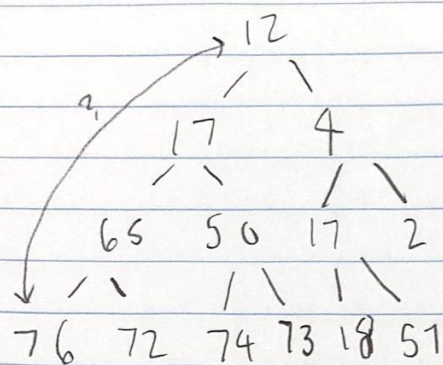 12
?
17 4
65 50 17 2
76 72 74 73 18 51